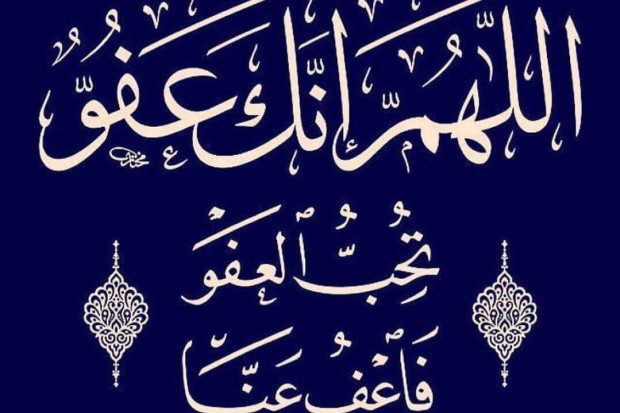 اللَّهُمَّ إِنَّكَ عَفُوٌّ
تُحِبُّ ٱلْعَفْوَ
فَاعْفُ عَنَّا